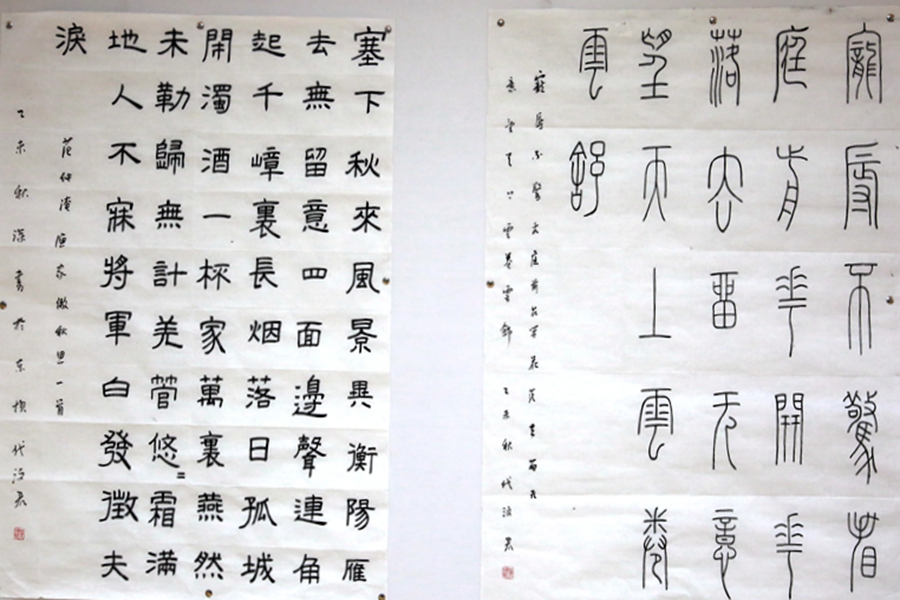 寵辱不驚看
庭前花開花
落去留无意
望天上雲卷
雲舒
寵辱不驚看庭前花開花落去留无
意望天上雲卷雲舒 乙未秋代
塞下秋來風景異衡陽雁
去無留意四面邊聲連角
起千嶂裏長烟落日孤城
閉濁酒一杯家萬裏燕然
未勒歸無計羌管悠〻霜滿
地人不寐將軍白發徵夫
淚
范仲淹漁家傲秋思一首
乙未秋深書於东 代